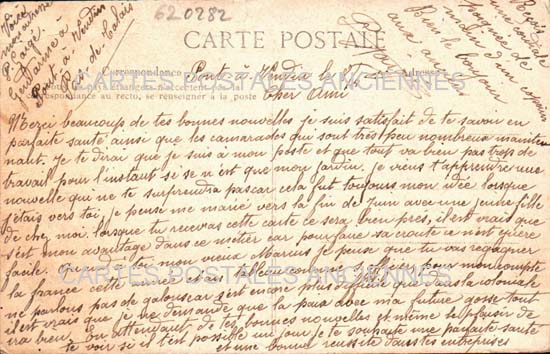 620282
Voici
mon adresse
P. Lagé
Gendarme à
Pont à Vendin
Pas de Calais
CARTE POSTALE
Correspondance
Adresse
étrangers n'acceptent pas
respondance au recto, se renseigner à la poste
Pont à Vendin le
Cher Ami
Reçois
une cordiale
poignée de
main d'un copain
Bien le bonjour
aux amis
Merci beaucoup de tes bonnes nouvelles je suis satisfait de te savoir en
parfaite santé ainsi que les camarades qui sont très peu nombreux mainten
nant. je te dirai que je suis à mon poste et que tout va bien pas trop de
travail pour l'instant si se n'est que mon jardin. je viens t'apprendre une
nouvelle qui ne te surprendra pas car cela fut toujours mon idée lorsque
j'étais vers toi. je pense me marié vers la fin de Juin avec une jeune fille
de chez moi. lorsque tu recevras cette carte ce sera bien près, il est vrai que
s'est mon avantage dans ce métier car pour faire sa croute ce n'est guère
facile. Que dis tu mon vieux je pense que tu vas regagner
la france cette année dans mon compte
ne parlons pas de la coloniale
il est vrai que je me demande que la paix avec ma future gosse tout
ira bien. En attendant de tes bonnes nouvelles et même le plaisir de
te voir si il t'est possible un jour je te souhaite une parfaite santé
et une bonne réussite dans tes entreprises
CARTES POSTALES ANCIENNES
CARTES POSTALES ANCIENNES